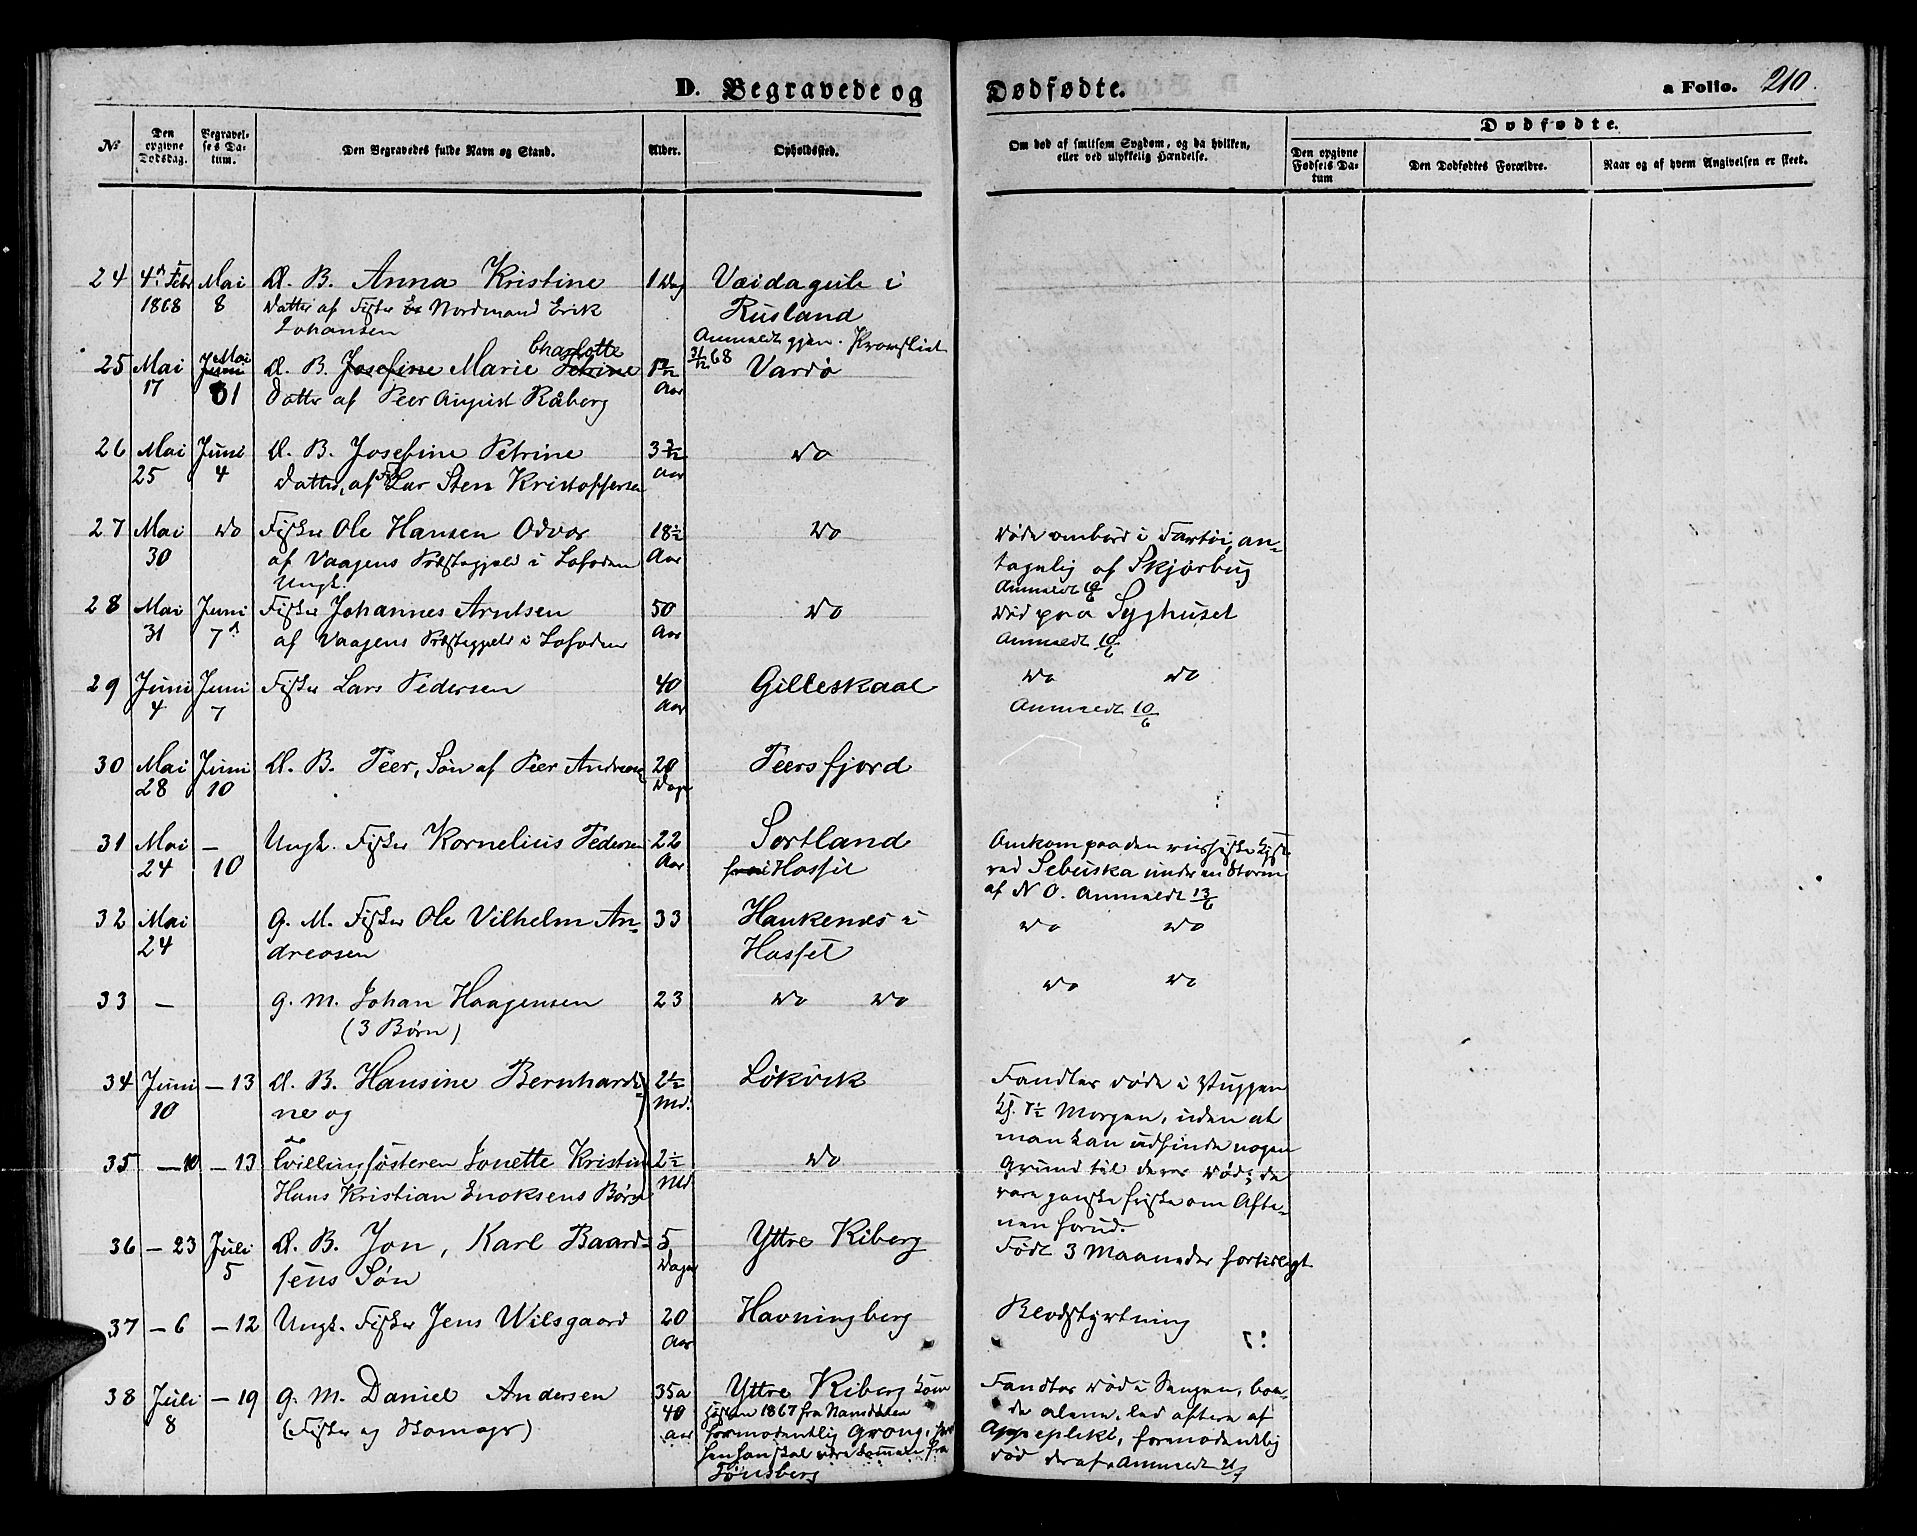 D. Begravede og Dødfødte. a Folio. 210.
No
Den opgivne Dødsdag.
Begravelses Datum.
Den Begravedes fulde Navn og Stand.
Alder.
Opholdssted.
Om død af smitsom Sygdom, og da hvilken, eller ved ulykkelig Hændelse.
Dødfødte.
Den opgivne Fødsels Datum
Den Dødfødtes Forældre.
Naar og af hvem Angivelsen er skeet.
24 4de Febr Mai D. B. Anna Kristine 1 Dag Vaidagub i
1868 8 Datter af Fisker Nordmand Erik Rusland
Johansen Anmeldt gjen.
25 Mai Mai D. B. Josefine Marie Charlotte Petrine Aar 31/12 68 Vardø
17 31 Datter af Peer August Råberg
26 Mai Juni D. B. Josefine Petrine 3 Aar Do
25 4 Datter af Lar Sten Kristoffersen
27 Mai Do Fisker Ole Hansen Odvar 18½ Do Døde ombord i Fartøi, an-
30 af Vaagens Præstegjeld i Lofoden Aar tagelig af Skjørbug
Ungk. Anmeldt
28 Mai Juni Fisker Johannes Arntsen 50 Do Død paa Syghuset
31 7de af Vaagens Præstegjeld i Lofoden Aar Anmeldt 10/6
29 Juni Juni Fisker Lars Pedersen 40 Gilleskaal Do Do
4 7 Aar Anmeldt 10/6
30 Mai Juni D. B. Peer, Søn af Peer Andreas 20 Peersfjord
28 10 Dage
31 Mai - Ungk. Fisker Kornelius Pedersen 22 Sortland Omkom paa den russiske
24 10 Aar Hassel ved Sebuska under en Storm
af N O. Anmeldt 13/6
32 Mai G. M. Fisker Ole Vilhelm An- 33 Haukenes i Do Do
24 dreasen Hassel
33 - G. M. Johan Haagensen 23 Do Do Do Do
(3 Børn)
34 Juni - 13 D. B. Hansine Bernhardi- 2½ Løkvik Fandtes døde i Vuggen
10 ne og Md. Kl. Morgen, uden at
man kan udfinde nogen
35 - 10 - 13 Tvillingsøsteren Jonette Kristin 2½ Do Grund til deres Død; de
Hans Kristian Enoksens Børn Md. vare ganske friske om Afte-
nen forud.
36 - 23 Juli D. B. Jon, Karl Baard- 5 Yttre Kiberg Født 3 Maaneder fortidligt
5 sens Søn Dage
37 - 6 - 12 Ungk. Fisker Jens Wilsgaard 20 Havningberg Blodstyrtning
Aar
38 Juli - 19 G. M. Daniel Andersen 35 a Yttre Kiberg kom Fandtes død i Sengen, boe-
8 (Fisker og Skomagr) 40 1867 fra Namdalen de alene, led oftere af
aar formodentlig Grong, formodentlig
han skal være kommen fra død deraf Anmeldt 21/7
Tønsberg